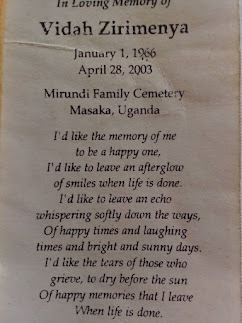 In Loving Memory of
Vidah Zirimenya
January 1, 1966
April 28, 2003
Mirundi Family Cemetery
Masaka, Uganda
I'd like the memory of me
to be a happy one,
I'd like to leave an afterglow
of smiles when life is done.
I'd like to leave an echo
whispering softly down the ways,
Of happy times and laughing
times and bright and sunny days.
I'd like the tears of those who
grieve, to dry before the sun
Of happy memories that I leave
When life is done.